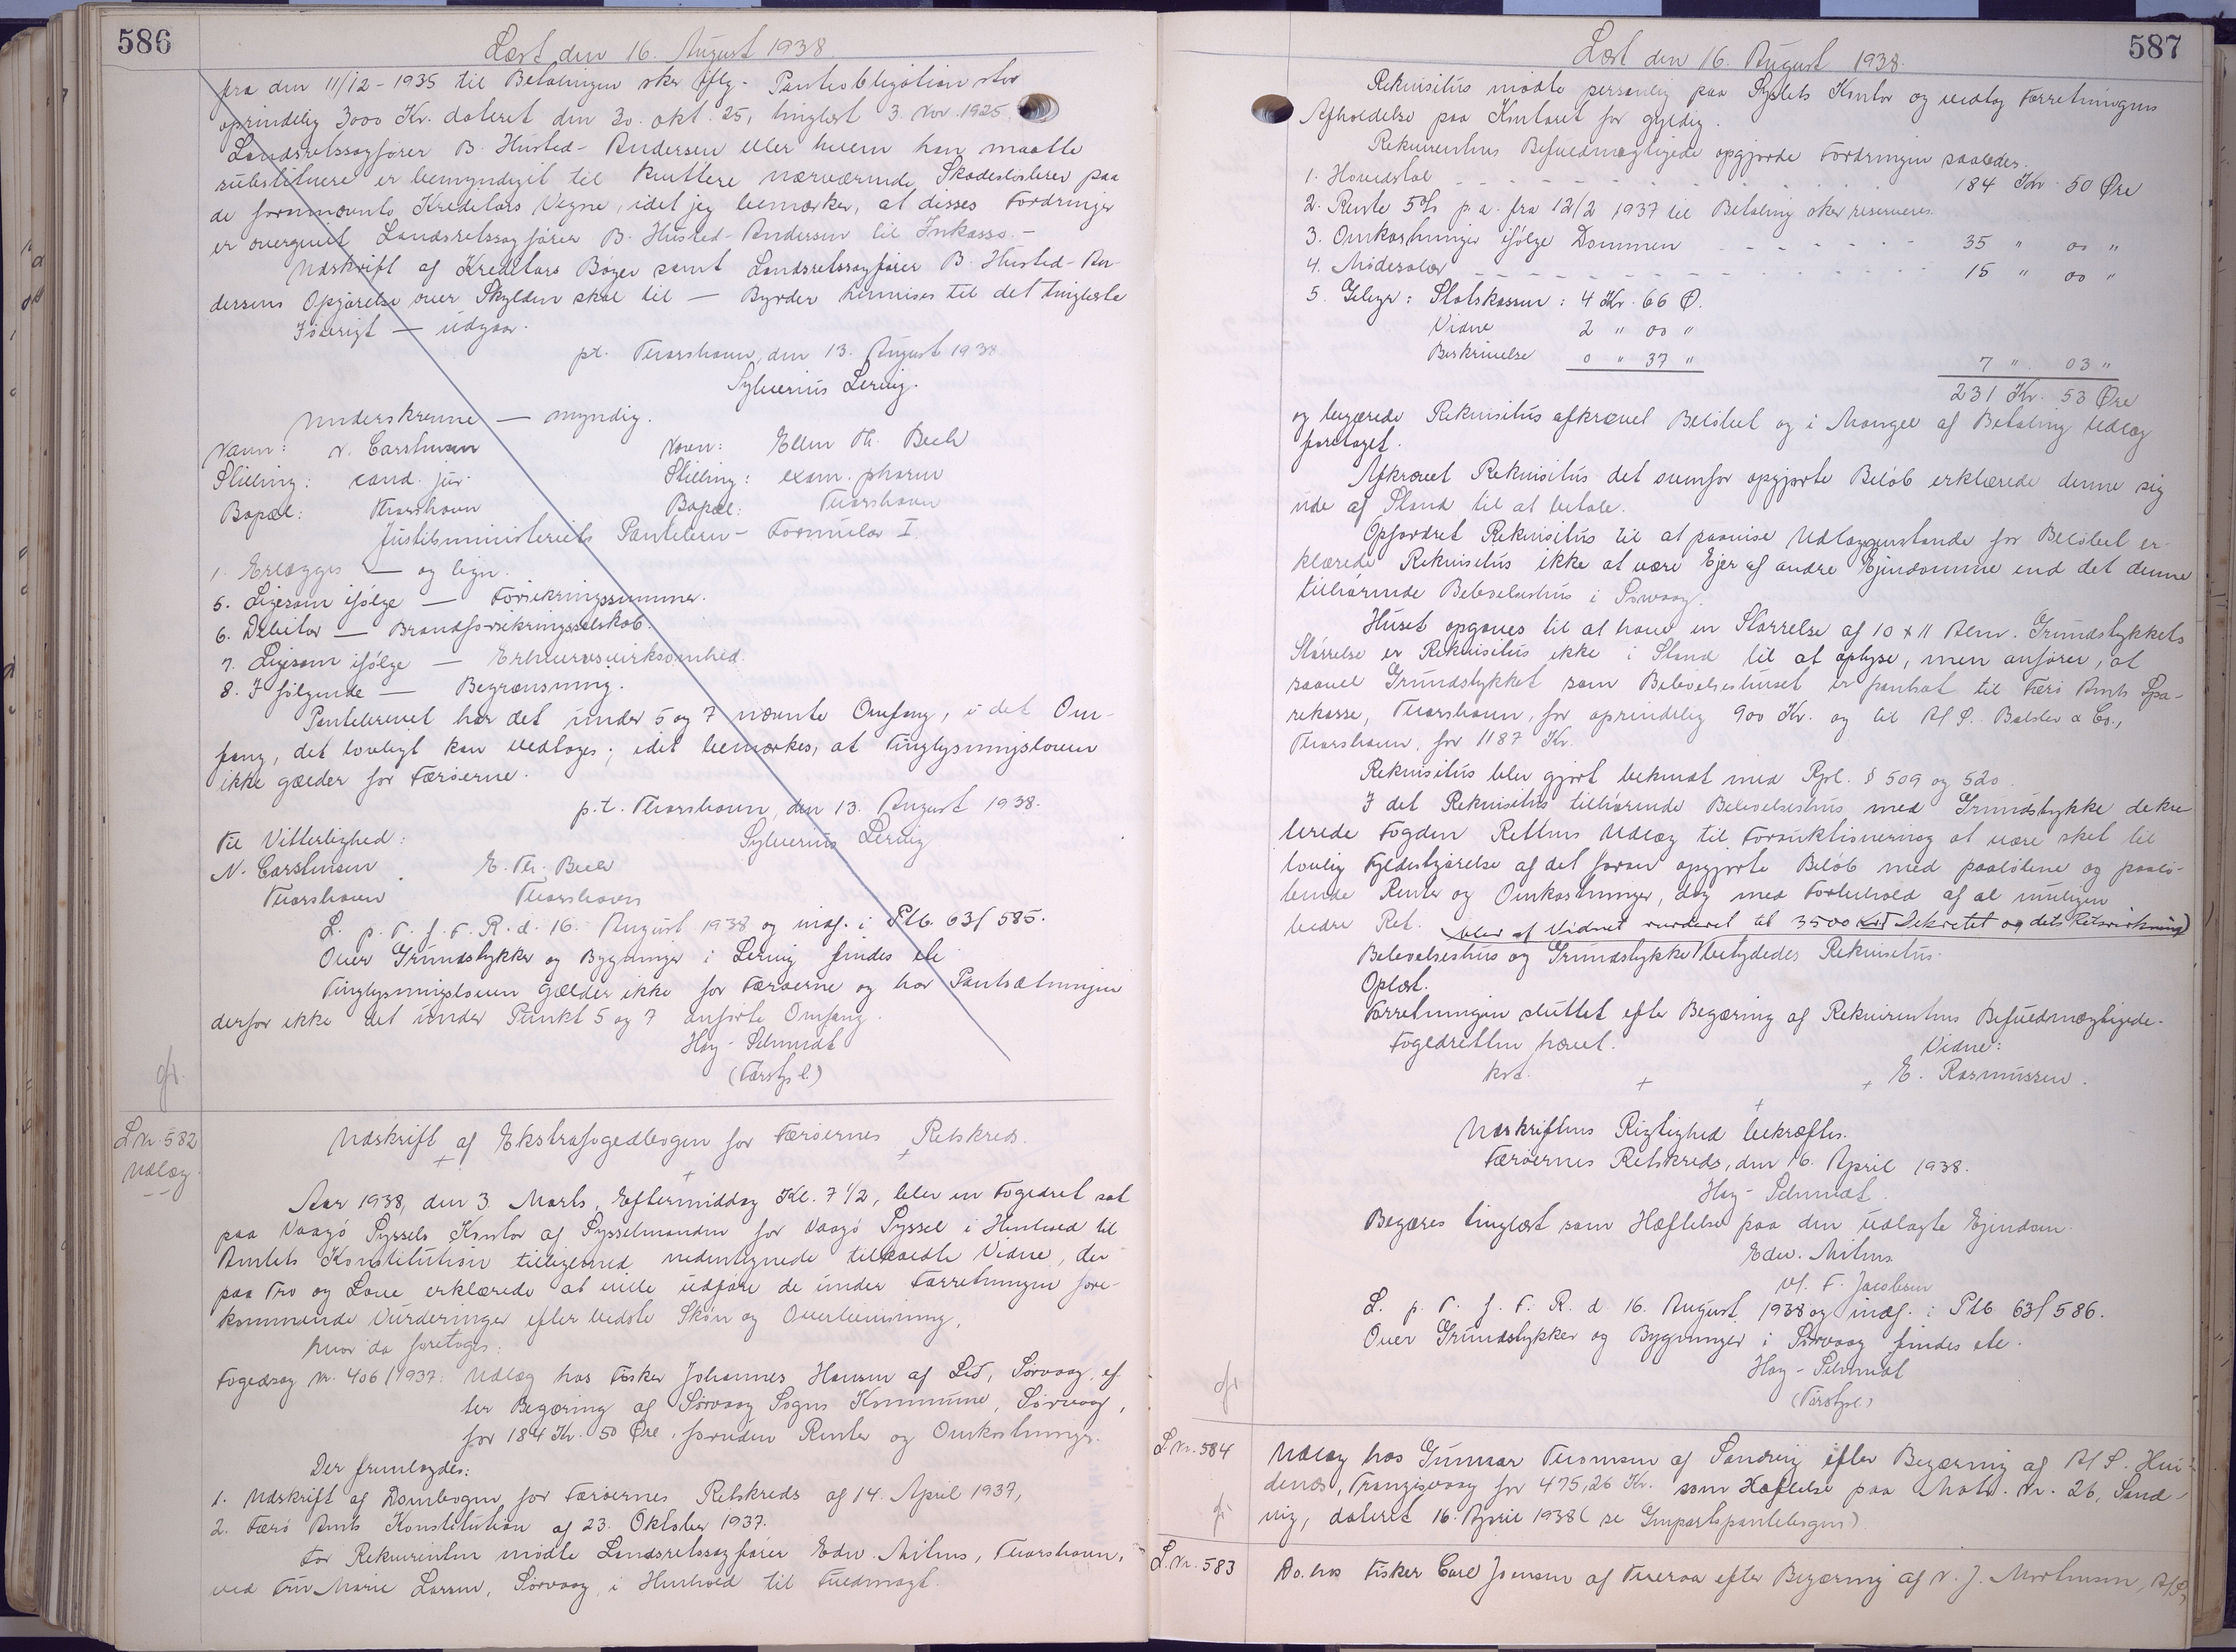 586
Læst den 16. August 1938
fra den 11/12-1935 til Betalingen sker iflg. Panteobligation stor
oprindelig 3000 Kr. dateret den 30. okt. 25, tinglæst 3. Nov. 1925.
Landsretssagfører B. Husted-Andersen eller hvem han maatte
substituere er bemyndiget til kvittere nærværende Skadesløsbrev paa
de fornævnte Kreditors Vegne, idet jeg bemærker, at disses Fordringer
er overgivet Landsretssagfører B. Husted-Andersen til Inkasso.-
Udskrift af Kreditors Bøger samt Landsretssagfører B. Husted-An-
dersens Opgørelse over Skylden skal til — Byrder henvises til det tinglæste
Iøvrigt — udgaar.
pt. Thorshavn, den 13. August 1938.
Sylverius Lervig.
Underskrevne — myndig.
Navn: N. Carstensen Navn: Ellen Th. Bech
Stilling: cand. jur. Stilling: exam. pharm
Bopæl: Thorshavn Bopæl: Thorshavn
Justitsministeriets Pantebrev- Formular I.
1. Erlægges — og lign.
5. Ligesom ifølge — Forsikringssummer.
6. Debitor — Brandforsikringsselskab.
7. Ligesom ifølge — Erhvervsvirksomhed.
8. I følgende — Begrænsning.
Pantebrevet har det under 5 og 7 nævnte Omfang, i det Om-
fang, det lovligt kan vedtages; idet bemærkes, at Tinglysningsloven
ikke gælder for Færøerne.
p.t. Thorshavn, den 13. August 1938.
Til Vitterlighed: Sylverius Lervig
N. Carstensen E. Th. Bech
Thorshavn Thorshavn
L. p. T. f. F. R. d. 16. August 1938 og indf. i Ptb. 63/585.
Over Grundstykker og Bygninger i Lervig findes ete
Tinglysningsloven gælder ikke for Færøerne og har Pantsætningen
derfor ikke det under Punkt 5 og 7 anførte Omfang.
Høy-Schmidt
L Nr. 582
Udlæg.
Udskrift af Ekstrafogedbogen for Færøernes Retskreds.
Aar 1938, den 3. Marts, Eftermiddag Kl. 7 1/2, blev en Fogedret sat
paa Vaagø Syssels Kontor af Sysselmanden for Vaagø Syssel i Henhold til
Amtets Konstitution tilligemed nedentegnede tilkaldte Vidne, der
paa Tro og Love erklærede at ville udføre de under Forretningen fore-
kommende Vurderinger efter bedste Skøn og Overbevisning,
hvor da foretoges:
Fogedsag Nr. 406/1937: Udlæg hos Fisker Johannes Hansen af Lið, Sørvaag, ef-
ter Begæring af Sørvaag Sogns Kommune, Sørvaag,
for 184 Kr. 50 Øre, foruden Renter og Omkostninger.
Der fremlagdes:
1. Udskrift af Dombogen for Færøernes Retskreds af 14. April 1937,
2. Færø Amts Konstitution af 23. Oktober 1937.
For Rekvirenten mødte Landsretssagfører Edw. Mitens, Thorshavn,
ved Fru Marie Larsen, Sørvaag, i Henhold til Fuldmagt.
587
Læst den 16. August 1938.
Rekvisitus mødte personlig paa Syslets Kontor og vedtog Forretningens
Afholdelse paa Kontoret for gyldig.
Rekvirentens Befuldmægtigede opgjorde Fordringen saaledes:
1. Hovedstol 184 Kr. 50 Øre
2. Rente 5% p.a. fra 12/2 1937 til Betaling sker reserveres.
3. Omkostninger ifølge Dommen 35 " 00 "
4. Mødesalær 15 " 00 "
5. Gebyr: Statskassen: 4 Kr. 66 Ø.
Vidne 2 " 00 "
Beskrivelse 0 " 37 " 7 " 03 "
231 Kr. 53 Øre
og begærede Rekvisitus afkrævet Beløbet og i Mangel af Betaling Udlæg
foretaget.
Afkrævet Rekvisitus det ovenfor opgjorte Beløb erklærede denne sig
ude af Stand til at betale.
Opfordret Rekvisitus til at paavise Udlægsgenstande for Beløbet er-
klærede Rekvisitus ikke at være Ejer af andre Ejendomme end det denne
tilhørende Beboelseshus i Sørvaag.
Huset opgaves til at have en Størrelse af 10 x 11 Alen. Grundstykkets
Størrelse er Rekvisitus ikke i Stand til at oplyse, men anfører, at
saavel Grundstykket som Beboelseshuset er pantsat til Færø Amts Spa-
rekasse, Thorshavn, for oprindelig 900 Kr. og til A/S. Balslev & Co.,
Thorshavn, for 1187 Kr.
Rekvisitus blev gjort bekendt med Rpl. § 509 og 520.
I det Rekvisitus tilhørende Beboelseshus med Grundstykke dekre
terede Fogden Rettens Udlæg til Forauktionering at være sket til
lovlig Fyldestgørelse af det foran opgjorte Beløb med paaløbne og paalø-
bende Renter og Omkostninger, dog med Forbehold af al muligen
bedre Ret. blev af Vidnet vurderet til 3500 Kr. Dekretet og dets Retsvirkning
Beboelseshus og Grundstykke betydedes Rekvisitus.
Oplæst.
Forretningen sluttet efter Begæring af Rekvirentens Befuldmægtigede.
Fogedretten hævet. Vidne:
E. Rasmussen.
Udskriftens Rigtighed bekræftes.
Færøernes Retskreds, den 16. April 1938.
Høy-Schmidt.
Begæres tinglæst som Hæftelse paa den udlagte Ejendom.
Edw. Mitens
v/ F. Jacobsen
L. p. T. f. F. R. d. 16. August 1938 og indf. i Ptb 63/586.
Over Grundstykker og Bygninger i Sørvaag findes ete.
Høy-Schmidt
L Nr. 584
Udlæg hos Gunnar Thomsen af Sandvig efter Begæring af A/S.
Trangisvaag for 475,26 Kr. som Hæftelse paa Matr. Nr. 26, Sand-
vig, dateret 16. April 1938
L. Nr. 583
Do. hos Fisker Carl Joensen af Tveraa efter Begæring af N. J. Mortensen, A/S,